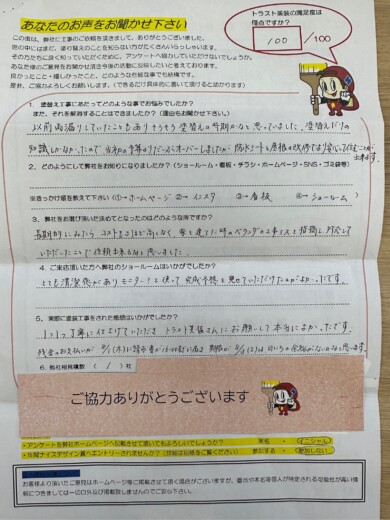 あなたのお声をお聞かせ下さい
トラスト美装の満足度は
何点ですか？
100 /100
この度は、弊社に工事のご依頼を頂きまして、ありがとうございました。
世の中にはまだ、塗り替えのことを知らない方がたくさんいらっしゃいます。
その方たちに良く知っていただくために、アンケートへ協力していただけないでしょうか。
あなた様のご意見をお聞かせ頂き今後の活動に反映したいと考えております。
良かったこと・嬉しかったこと、どのような些細な事でも結構です。
是非、ご協力よろしくお願いします。（できるだけ具体的に書いて頂けると助かります）
1．塗替え工事にあたってどのような事でお悩みでしたか？
また、それを解消することはできましたか？（理由もお聞かせ下さい。）
以前雨漏りしていたこともありそろそろ塗替えの時期かなと思っていました。塗替えだけの
知識しかなかったので
2．どのようにして弊社をお知りになりましたか？（ショールーム・看板・チラシ・ホームページ・SNS・ゴミ袋等）
※きっかけ順を教えて下さい（①→ホームページ ②→インスタ ③→看板 ④→ショールーム）
3．弊社をお選び頂いた決めてとなったのはどのような所ですか？
長期的にみたら、コストもさほど高くなく、家を建てた時のベランダの工事ミスを指摘し、対応して
いただいたことで信頼出来るなと思いました。
4．ご来店頂いた方へ弊社のショールームはいかがでしたか？
とても清潔感がありモニターを使って完成予想を見せていただけたのがよかったです。
5．実際に塗装工事をされた感想はいかがでしたか？
1つ1つ丁寧に仕上げていただき トラスト美装さんにお願いして本当によかったです。
6．他社相見積数（ 1 ）社
ご協力ありがとうございます
・アンケートを弊社ホームページへ記載させて頂いてもよろしいでしょうか？ 実名 ・ イニシャル
・年間ナイスデザイン賞へエントリーされませんか？（詳細は別紙をご覧ください） 参加する ・ 参加しない
お客様より頂いたご意見はホームページ等に掲載させて頂く場合がございますが、番地や本名等個人が特定される可能性が高い情
報につきましては一切口外及び掲載致しませんのでご安心下さい。